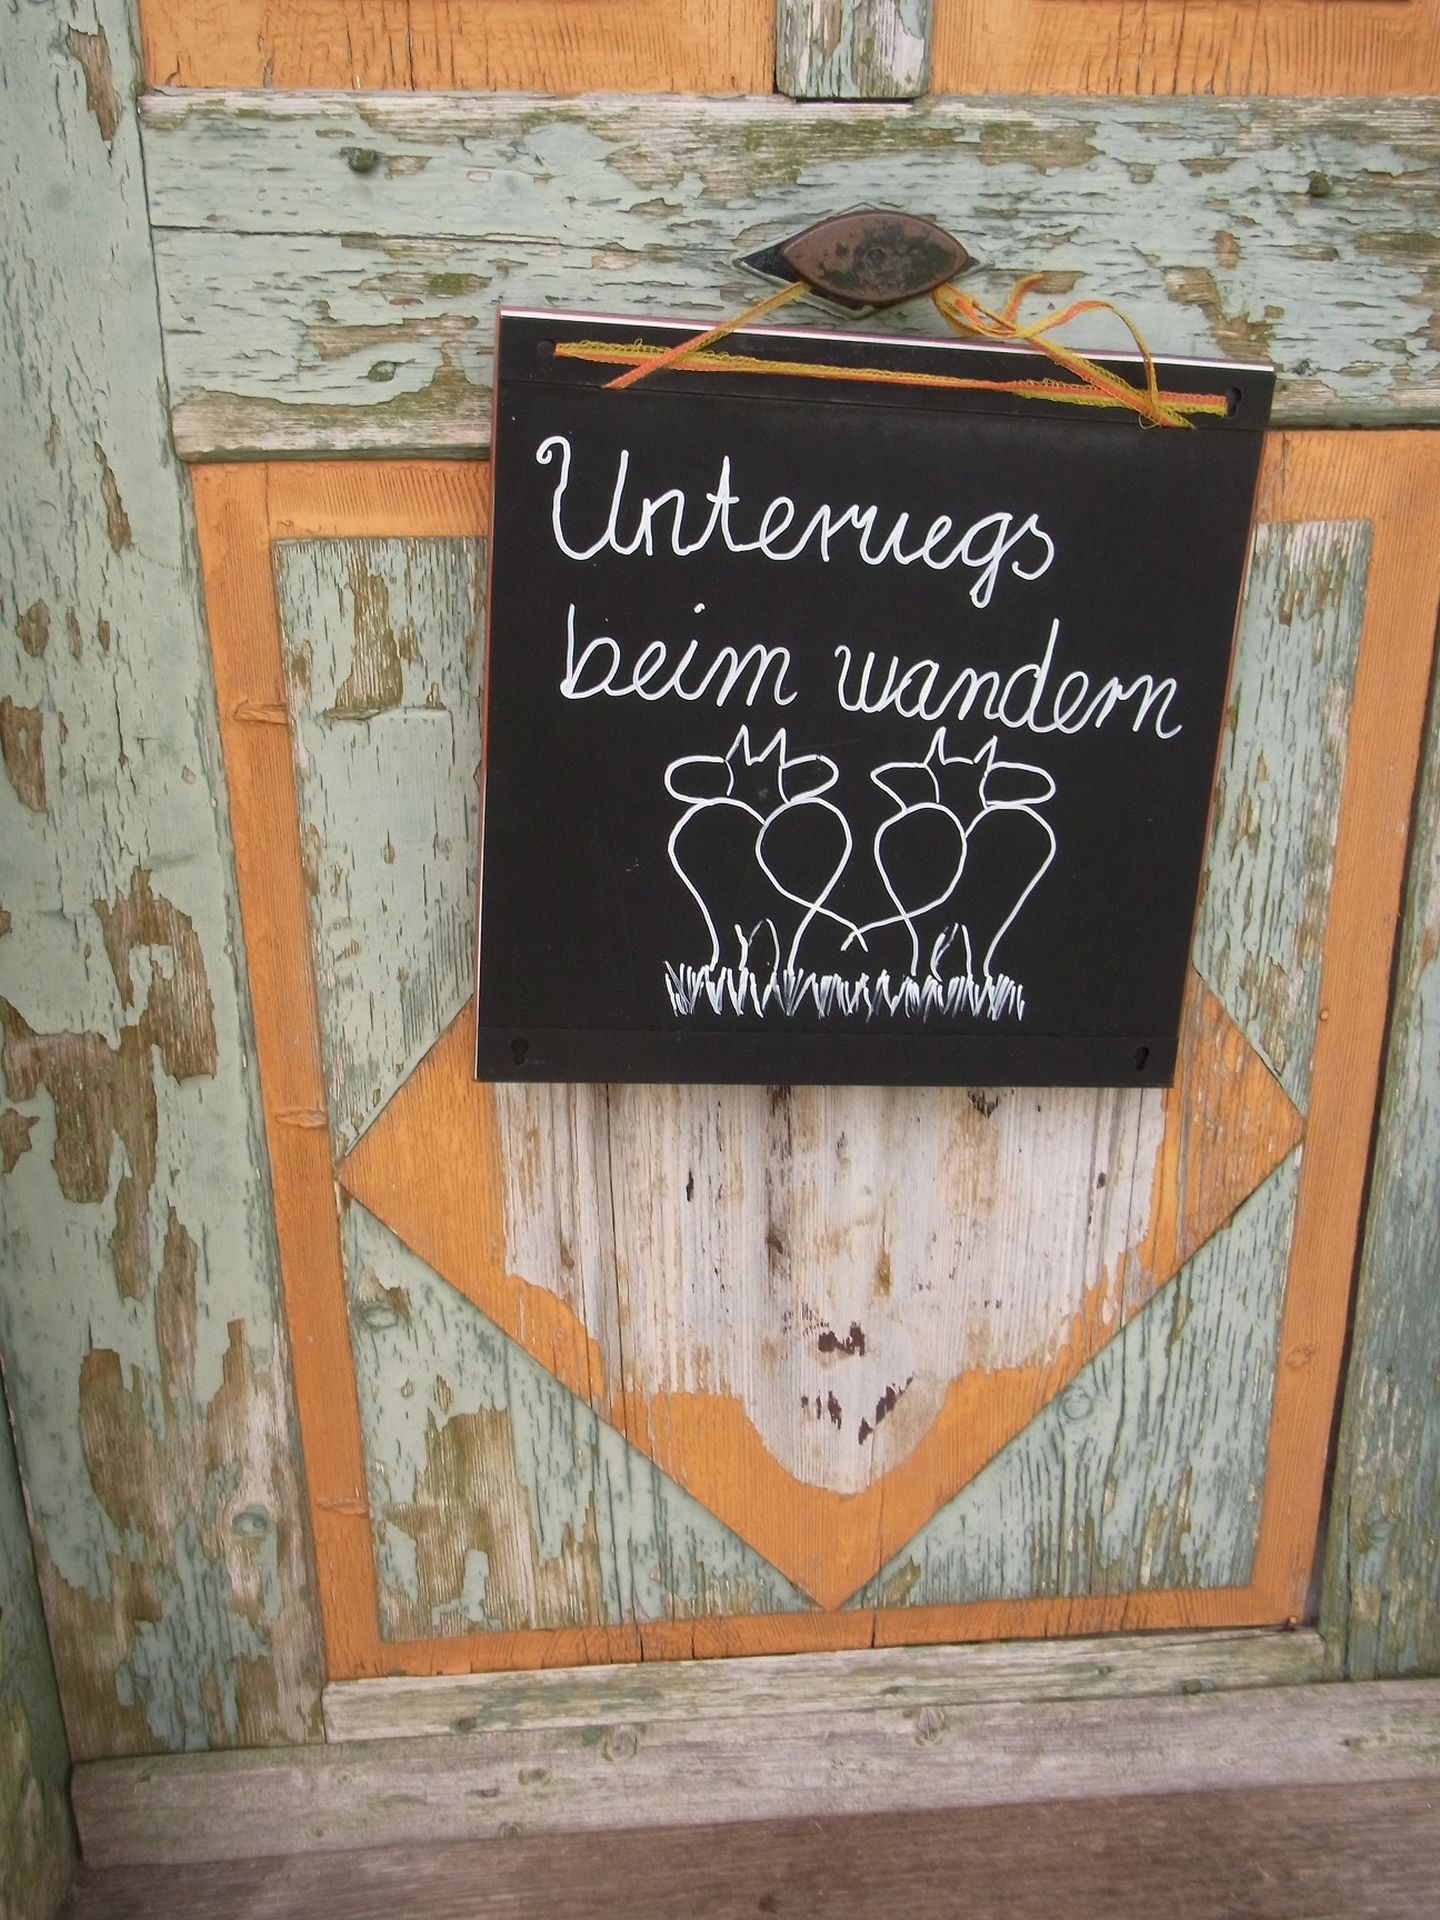 Unterwegs
beim wandern